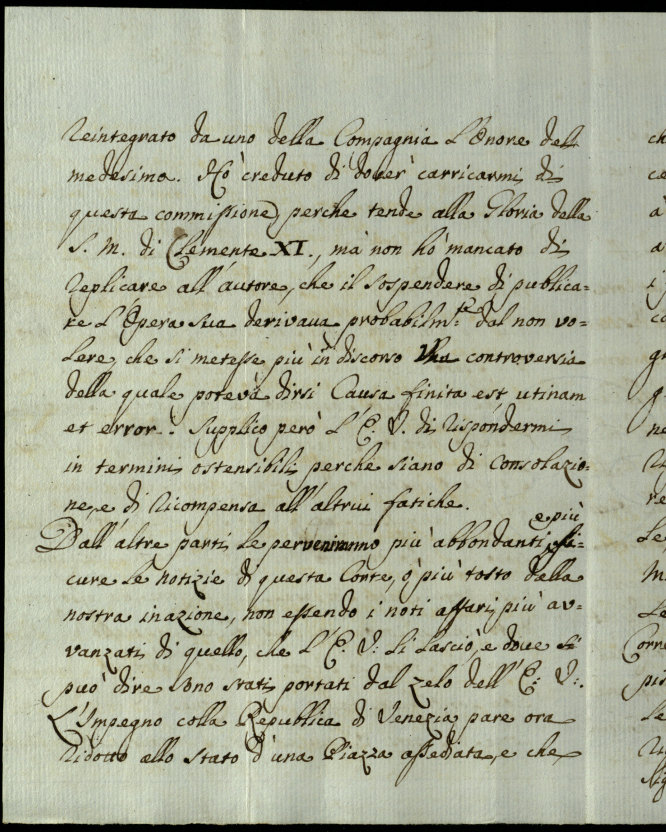 Reintegrato da uno della Compagnia l'Onore del
medesimo. Hò creduto di dover carricarmi di
questa commissione, perche tende alla Gloria della
S. M. di Clemente XI., mà non hò mancato di
Replicare all'autore, che il sospendere di publica=
re l'Opera sua derivava probabilm:te dal non vo=
lere, che si metesse più in discorso una controversia
della quale potevà dirsi Causa finita est utinam
et error. Supplico però l'E. V. di Rispondermi
in termini ostensibili, perche siano di consolazio=
ne, e di Ricompensa all'altrui fatiche.
e più
Dall'altre parti le perveniranno più abbondanti, si=
cure le notizie di questa Corte, ò più tosto dalla
nostra inazione, non essendo i noti affari più av=
vanzati di quello, che l'E: V: li lasciò, e dove si
può dire sono stati portati dal zelo dell'E: V:.
L'Impegno colla Republica di Venezia pare ora
Ridotto allo stato d'una Piazza assediata, e che
ch
ce
a
i
co
gr
ne
re
Le
M
Le
Corne
pis
Le